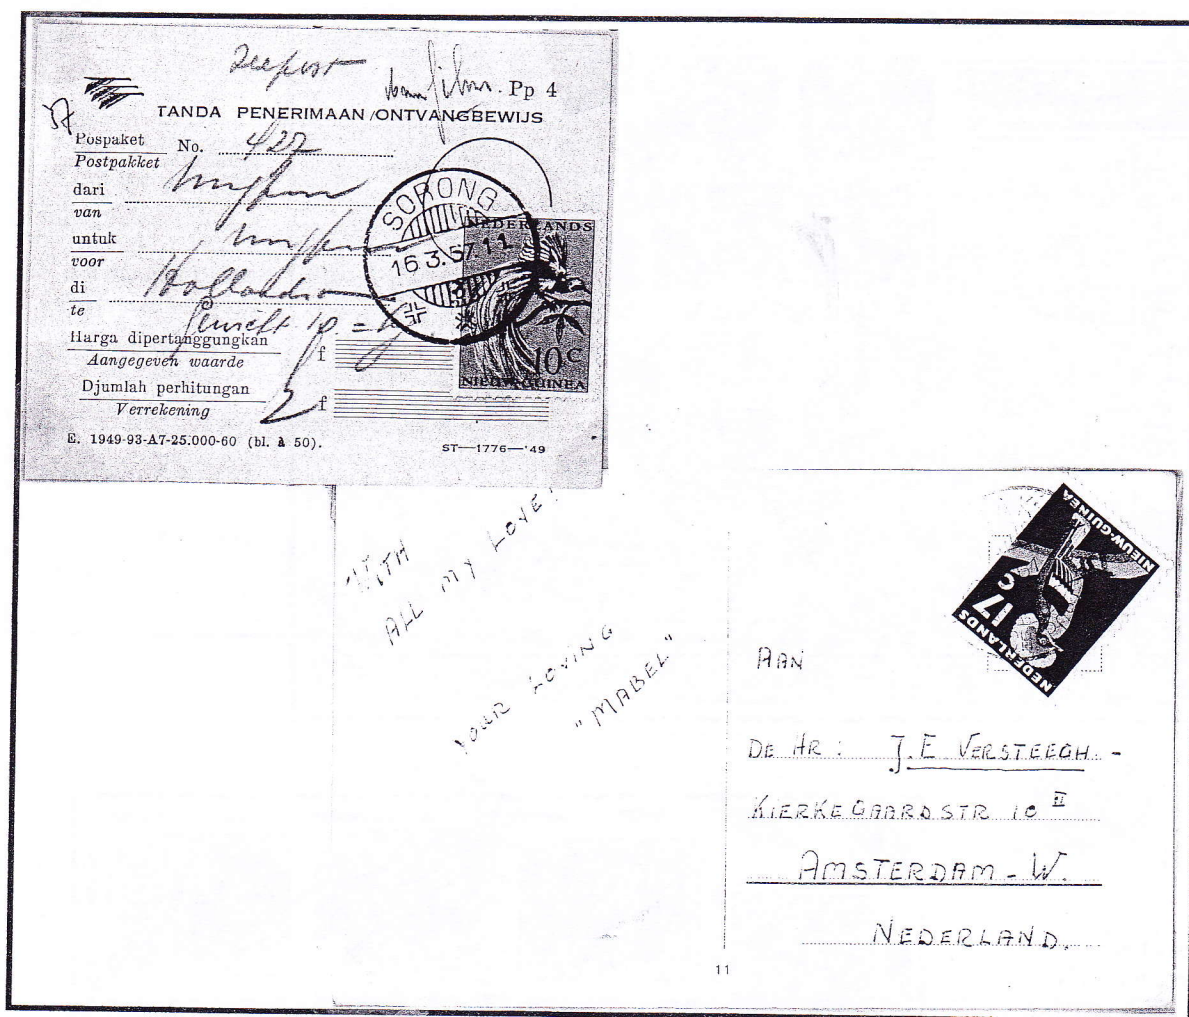 Zeepost
Pp 4
TANDA PENERIMAAN/ONTVANGBEWIJS
57
Pospaket No. 427
Postpakket
dari
van
untuk
voor
di Hollandia
te
Gewicht 10 = kg
Harga dipertanggungkan f
Aangegeven waarde
Djumlah perhitungan f
Verrekening
E. 1949-93-A7-25.000-60 (bl. à 50).
ST—1776—'49
SORONG
16.3.57.11
NEDERLANDS
10 C
NIEUW-GUINEA
WITH
ALL MY LOVE!
YOUR LOVING
"MABEL"
NIEUW-GUINEA
17 C
NEDERLANDS
AAN
DE HR: J.E VERSTEEGH.-
KIERKEGAARDSTR 10 II
AMSTERDAM - W.
NEDERLAND.
11